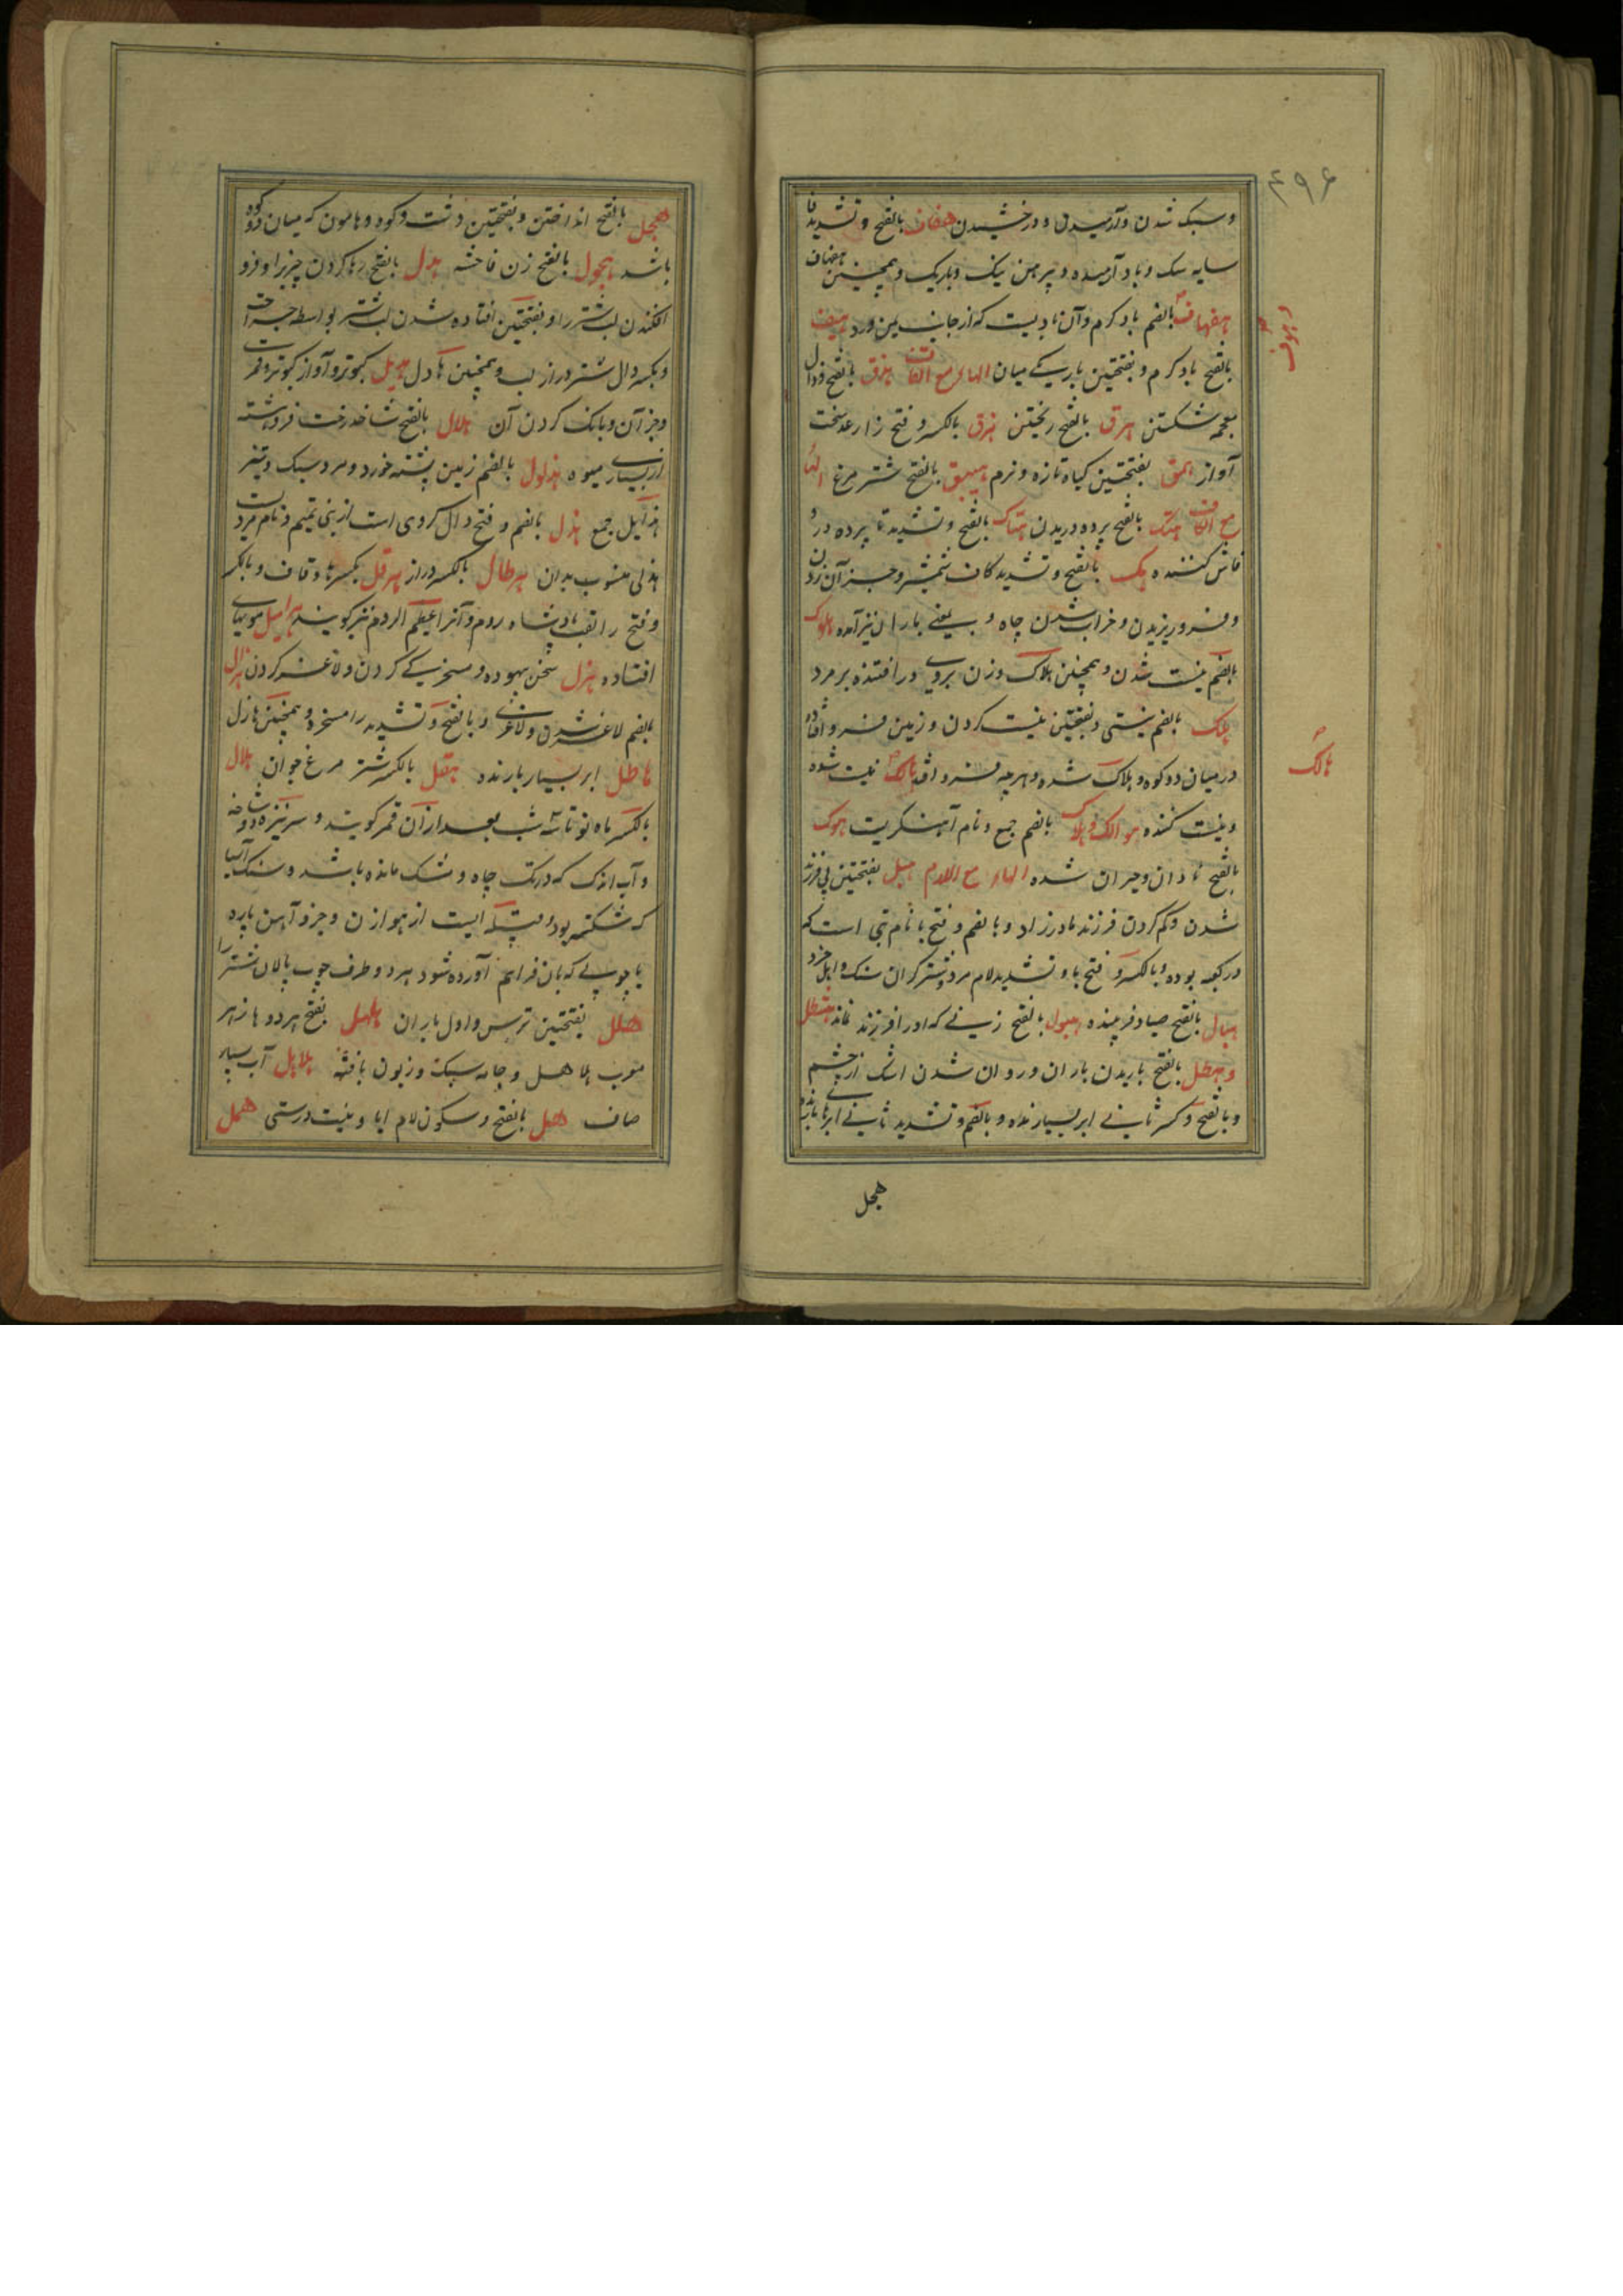 ۴۹۶
و سبک شدن و آرمیدن و درخشیدن هفاف بالفتح و تشدید فا
سایه سبک و باد آرمیده و پیرهن نیک و باریک و همچنین هفهاف
بالضم باد گرم و آن بادیست که از جانب یمن وزد هیف
بالفتح باد گرم و بفتحتین باریکی میان الهاء مع القاف هزق بالفتح و ذال
معجمه شکستن هرق بالفتح ریختن هزق بالکسر و فتح زا رعد سخت
آواز همق بفتحتین کیاه تازه و نرم هیق بالفتح شتر مرغ الهاء
مع الکاف هتک بالفتح پرده دریدن هتاک بالفتح و تشدید تا پرده در و
فاش کننده هک بالفتح و تشدید کاف شمشیر و جز آن زدن
و فرو ریزیدن و خراب شدن چاه و بمعنی باران نیز آمده هلوک
بالضم نیست شدن و همچنین هلاک و زن بروی در افتنده بر مرد
هلک بالضم نیستی و بفتحتین نیست کردن و زمین فرو افتاده
در میان دو کوه و هلاک شده و هرچه فرو افتد هالک نیست شده
و نیست کننده هوالک و هلاک بالضم جمع و نام آهنگریست هوک
بالفتح نادان و حیران شده الهاء مع اللام هبل بفتحتین بی فرزند
شدن و گم کردن فرزند مادر زاد و بالضم و فتح با نام بتی است که
در کعبه بوده و بالکسر و فتح با و تشدید لام مرد و شتر گران سنگ
هبال بالفتح صیاد فریبنده هبول بالفتح زنی که او را فرزند نماند هتل
و هطل بالفتح باریدن باران و روان شدن اشک از چشم
و بالفتح و کسر ثانی ابر بسیار بارنده و بالضم و تشدید ثانی ابرها بارنده
هجل
هالک
هجل بالفتح انداختن و بفتحتین دشت و کوه و هامون که میان دو کوه
باشد هجول بالفتح زن فاحشه هدل بالفتح رها کردن چیزی را و فرو
افکندن لب شتر را و بفتحتین افتاده شدن لب شتر بواسطه جراحت
و بکسر دال شتر دراز لب و همچنین هادل هدیل کبوتر و آواز کبوتر و قمری
و جز آن و بانک کردن آن هدال بالفتح شاخ درخت فروهشته
از بسیاری میوه هذلول بالضم زمین پشته خورد و مرد سبک و تیز
هذالیل جمع هذل بالضم و فتح دال گروهی است از بنی تمیم و نام مردیست
هذلی منسوب بدان هرطال بالکسر دراز هرقل بکسر ها و قاف و بالکسر
و فتح را لقب پادشاه روم و آنرا عظیم الروم نیز کویند هرامیل مویهای
افتاده هزل سخن بیهوده و مسخرگی کردن و لاغر کردن هزال
بالضم لاغر شدن و لاغری و بالفتح و تشدید زا مسخره و همچنین هازل
هاطل ابر بسیار بارنده هقل بالکسر شتر مرغ جوان هلال
بالکسر ماه نو تا سه شب بعد از آن قمر گویند و سر نیزه دو شاخه
و آب اندک که در تک چاه و مشک مانده باشد و سنگ آسیا
که شکسته بود و قبیله ایست از هوازن و جز و آهن پاره
یا چوبی که بان فراهم آورده شود هر دو طرف چوب پالان شتر را
هلل بفتحتین ترس و اول باران هلهل بفتح هر دو ها زهر
منسوب هلاهل و جامه سبک و زبون بافته هلاهل آب بسیار
صاف هل بالفتح و سکون لام ایا و نیست درستی همل